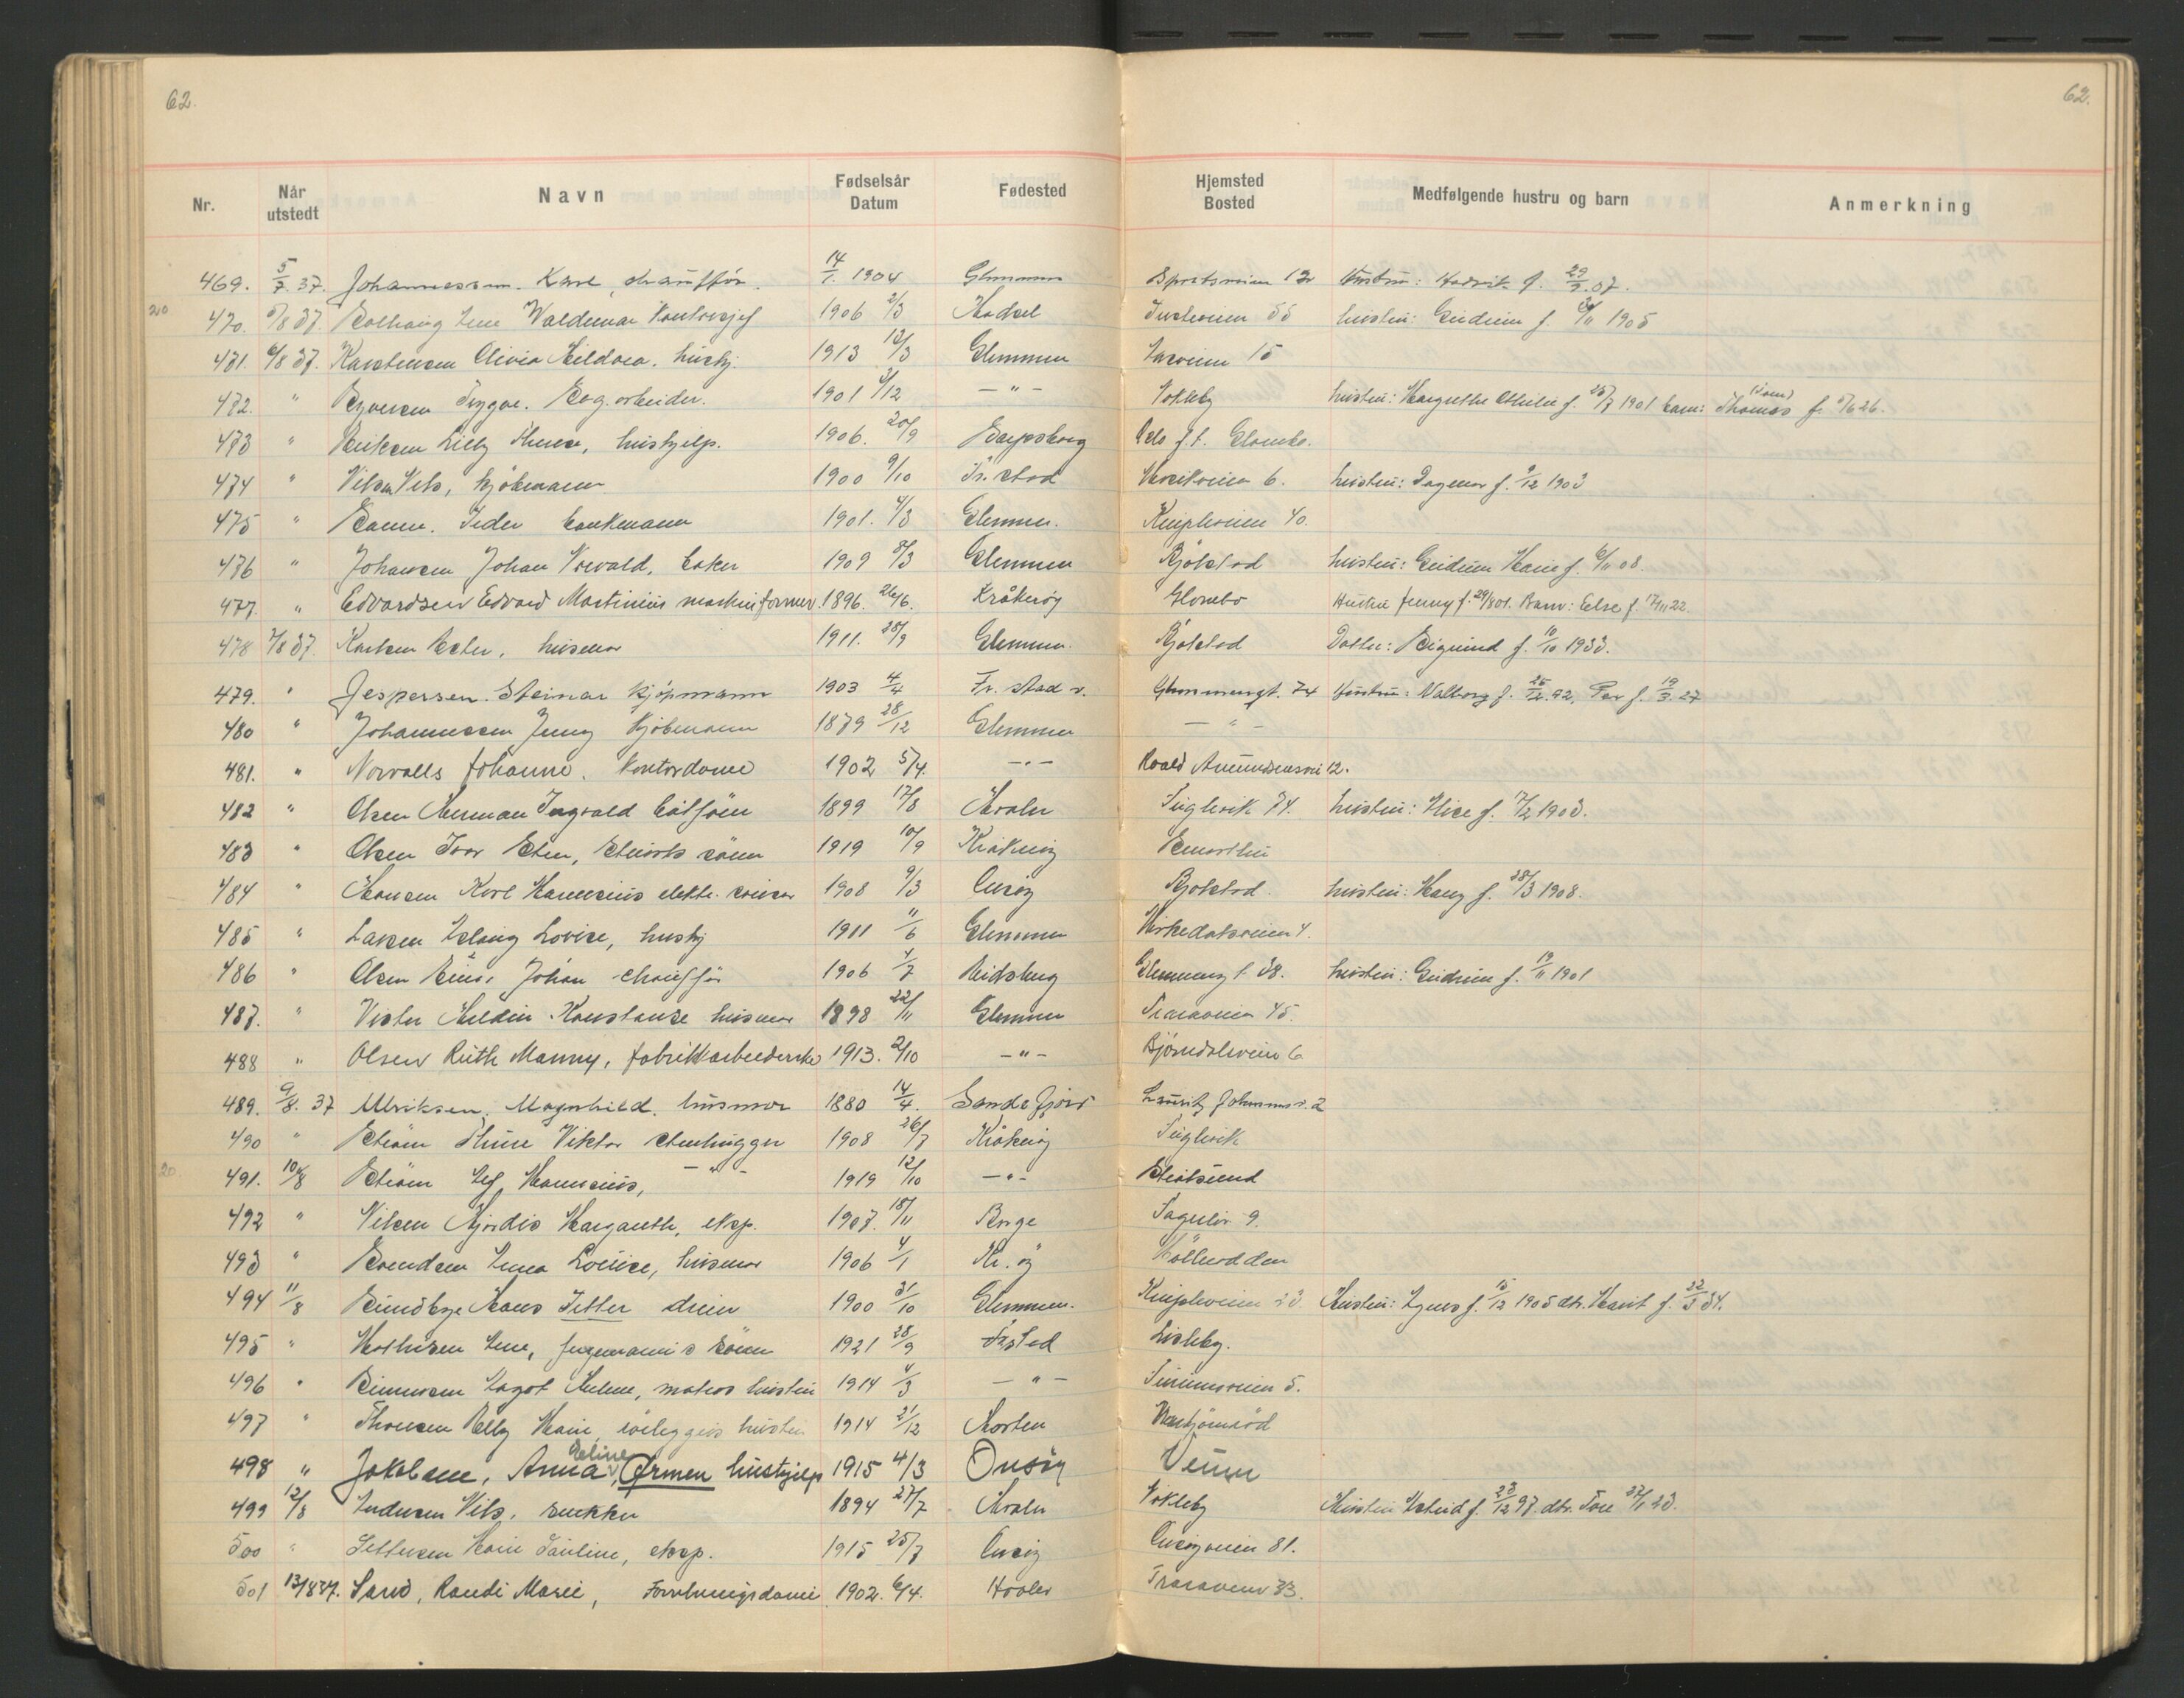 62. 62.
Nr. Når utstedt Navn Fødselsår Datum Fødested Hjemsted Bosted Medfølgende hustru og barn Anmerkning
469. 5/7. 37. Johannessen. Kåre, chauffør. 14/1. 1904 Glemmen Sportsveien 12 Hustru: f. 29/9. 07.
470. 5/8 37. Solhaug Waldemar Kontorsjef 1906 2/3 Hadsel 55 hustru: Gudrun f. 1905
471. 6/8 37. Karstensen Olivia Hildara. hushj. 1913 12/3 Glemmen 15
472. " Syversen Trygve. Sag.arbeider. 1901 4/12 — " — Nokleby hustru: Margrethe Othilie f. 25/7 1901 barn: (sønn) Thomas f. 26.
473 " Eriksen Lilly Thusse, hushjelp. 1906. 20/9 Sarpsborg Oslo f.t. Glombo.
474 " Nilsen Nils, kjøbmann 1900 9/10 Fr.stad 6. hustru: Dagmar f. 9/12 1903
475 " Peder bankmann 1901. 4/3 Glemmen. Knipleveien 40.
476 " Johansen Johan Norvald, baker 1909 8/3 Glemmen Bjølstad hustru: Gudrun Marie f. 6/11 08.
477. " Edvardsen Edvard Martinius maskinformer. 1896. 26/6. Kråkerøy Glombo Hustru Jenny f. 29/8 01. Barn: Else f. 17/11 22
478 7/8 37. Karlsen Ester, husmor 1911. 28/9 Glemmen. Bjølstad Datter: Sigrund f. 10/10 1933.
479. " Jespersen. Steinar kjøpmann 1903 4/4 Fr.stad v. Glemmengt. 74 Hustru: Valborg f. 25/12. 92, Per f. 19/3. 27
480 " Johannessen Jenny kjøbmann 1879 28/12 Glemmen — " —
481. " Norvalls Johanne. Kontordame 1902 5/4. — " — Roald Amundsensvei 12.
482 " Olsen Herman Ingvald båtsfører 1899 17/8 Hvaler Fuglevik 74. hustru: Alice f. 17/2 1903.
483 " Olsen Ivar Sten, stuerts sønn 1919 10/9 Kråkerøy Smertu
484 " Hansen Karl Hannsius elektr. sveiser 1908 9/3 Onsøy Bjølstad. hustru: Mary f. 28/3 1908.
485 " Larsen Aslaug Lovise, hushj 1911 11/6 Glemmen Virkedalsveien 4.
486 " Olsen Einar Johan chauffør 1906 4/7 Eidsberg Glemmengt. 38. hustru: Gudrun f. 19/11 1901
487. " Vister Hildur Konstanse husmor 1898 22/11 Glemmen Traraveien 45.
488 " Olsen Ruth Manny, fabrikkarbeiderske 1913. 2/10 — " — Bjørndalsveien 6
489. 9/8. 37 Ulriksen, Magnhild. husmor 1880 14/4. Sandefjord Lauritz Johannes v. 2
490 " Strøm Thure Viktor stenhugger 1908 26/7 Kråkerøy Fuglevik
491. 10/8 Strøm Leif Hannsius, — " — 1919 12/10 — " — Stratsund
492 " Nilsen Hjørdis Margareth, eksp. 1907. 18/11 Borge Fagerliv. 9.
493 " Svendsen Lovise, husmor 1906 4/1 Kr. øy Møllerodden
494 11/8 Sundbye Hans Petter dreier 1900 31/10 Glemmen. Knipleveien 23. Hustru: Agnes f. 15/12 1905 dtr. Marit f. 22/3 34.
495 " Mathisen Arne, fagmanns sønn 1921 28/9 Fr.stad Lisleby.
496 " Simensen Aagot Helene, matros hustru 1914 4/3 — " — 5.
497 " Thoresen Elly Marie, rørleggers hustru 1914 21/12 Horten
498 " Jakobsen, Anna Eline, Ørmen hushjelp 1915 4/3 Onsøy Veum
499 12/8 Andersen Nils, snekker 1894 27/7 Hvaler Nokleby Hustru Astrid f. 23/12 97. dtr. Tove 27/1 23.
500 " Pettersen Marie Pauline, eksp. 1915 25/7 Onsøy Onsøyveien 81.
501 13/8 37. Sand, Randi Marie, Forretningsdame 1902. 6/4. Hvaler Traraveien 33.